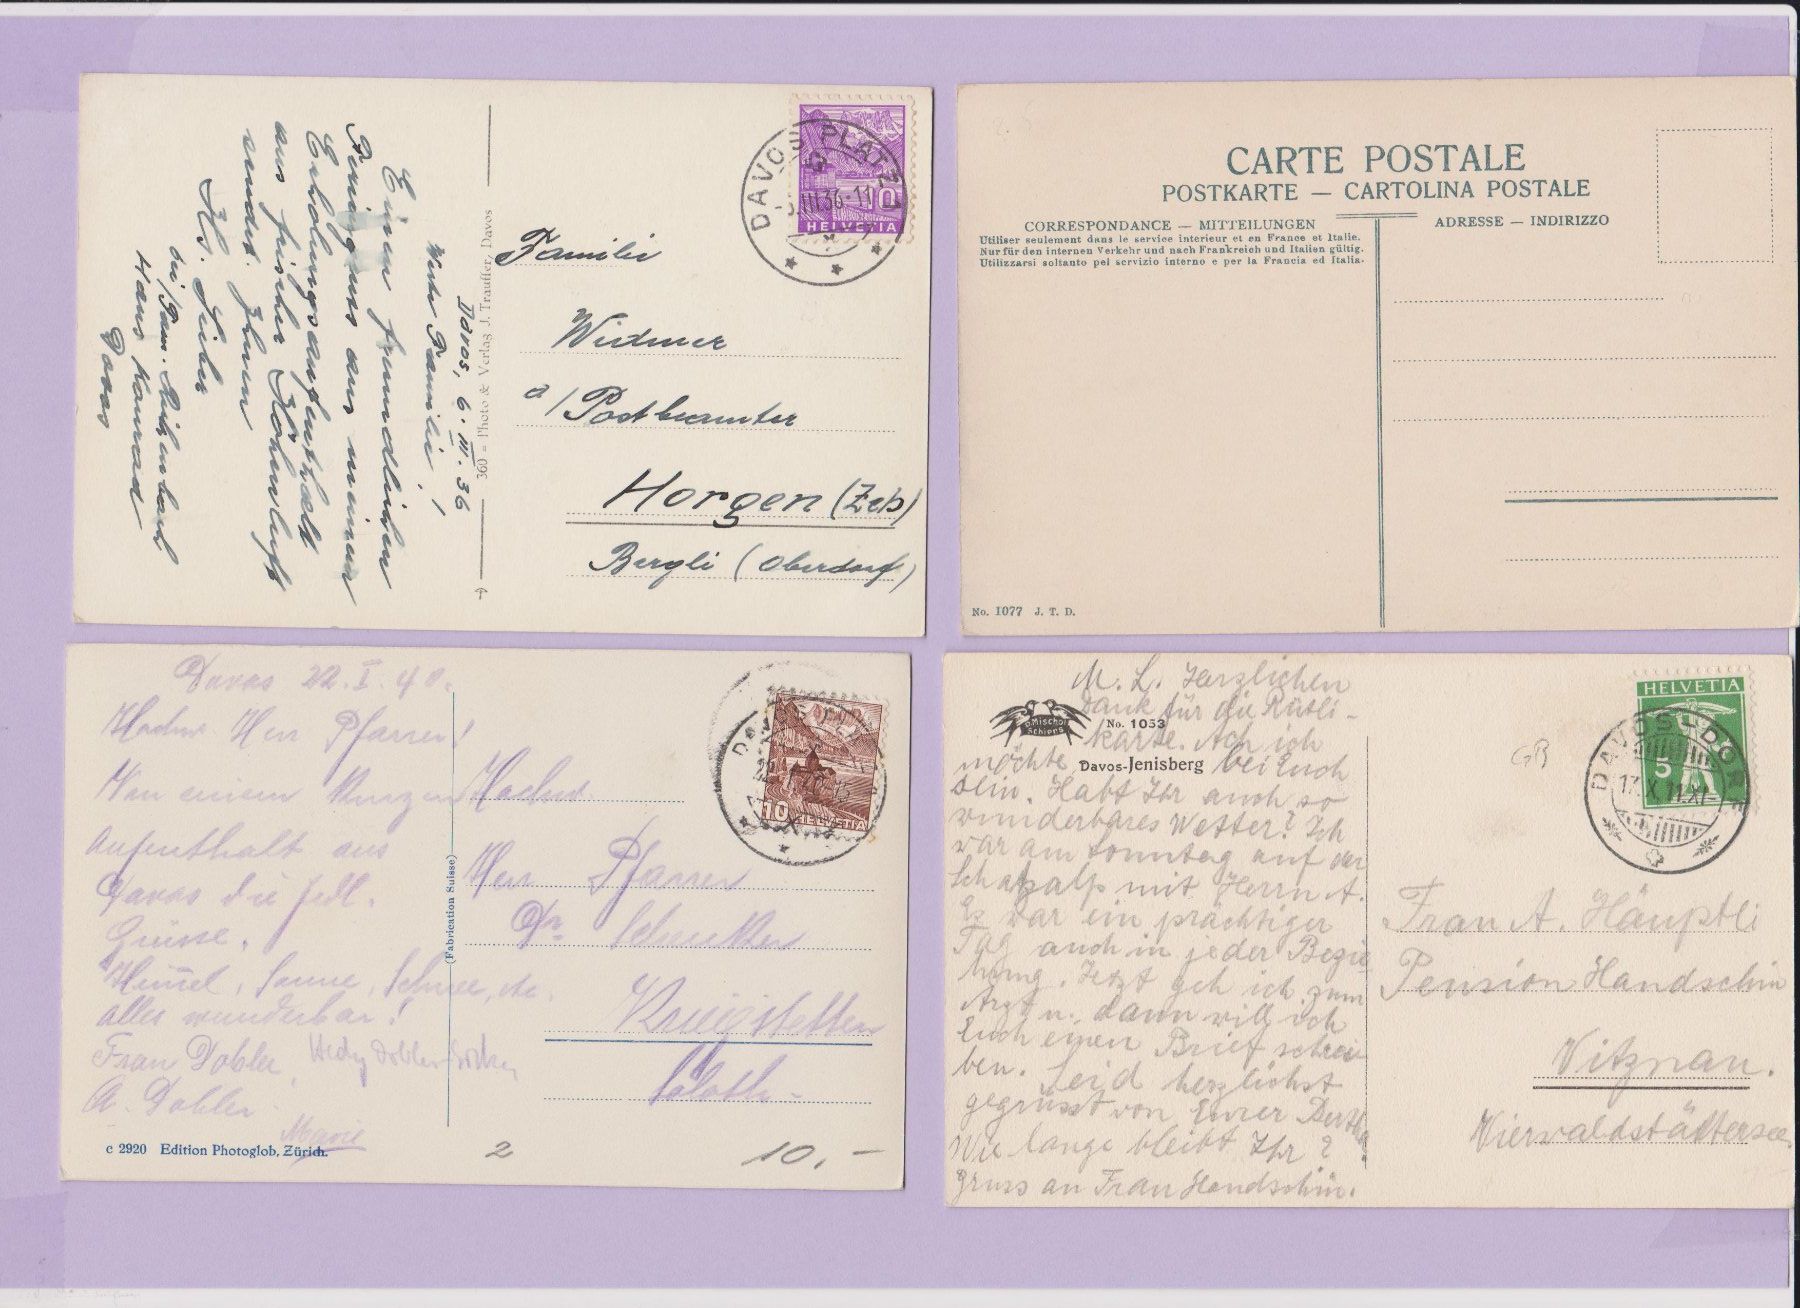 DAVOS PLATZ 1
III.36-11
10
HELVETIA
Familie
Widmer
a/Postbeamter
Horgen (Zch)
Bergli (Oberdorf)
360 = Photo & Verlag J. Trauffer, Davos
Davos, 6.III.36
Werte Familie!
Einen freundlichen
Feriengruss aus meinem
Erholungsaufenthalt
aus frischer Höhenluft
sendet Ihnen
bei Fam.
Hans Konrad
Davos
CARTE POSTALE
POSTKARTE — CARTOLINA POSTALE
CORRESPONDANCE — MITTEILUNGEN
Utiliser seulement dans le service interieur et en France et Italie.
Nur für den internen Verkehr und nach Frankreich und Italien gültig.
Utilizzarsi soltanto pel servizio interno e per la Francia ed Italia.
ADRESSE — INDIRIZZO
No. 1077 J. T. D.
Davos 22.I.40.
Hochw. Herr Pfarrer!
Von einem kurzen
Aufenthalt aus
Davos die frdl.
Grüsse.
Himmel, Sonne, Schnee, etc.
alles wunderbar!
Frau Dobler, Hedy Dobler
A. Dobler
Marie
c 2920 Edition Photoglob, Zürich.
(Fabrication Suisse)
10
HELVETIA
Hochw.
Herr Pfarrer
Dr.
Kriegstetten
Soloth.
2
10.-
M. L. Herzlichen
Dank für die Rütli-
karte. Ach ich
möchte bei Euch
sein. Habt Ihr auch so
wunderbares Wetter? Ich
war am Sonntag auf der
Schatzalp mit Herrn A.
Es war ein prächtiger
Tag auch in jeder Bezie
hung. Jetzt geh ich zum
Arzt u. dann will ich
Euch einen Brief schrei
ben. Seid herzlichst
gegrüsst von Eurer Bertha.
Wie lange bleibt Ihr?
Gruss an Frau Handschin.
D. Mischol
Schiers
No. 1053
Davos-Jenisberg
HELVETIA
5
DAVOS-DORF
17.X.11.XI-
GB
Frau A. Häuptli
Pension Handschin
Vitznau.
Vierwaldstättersee